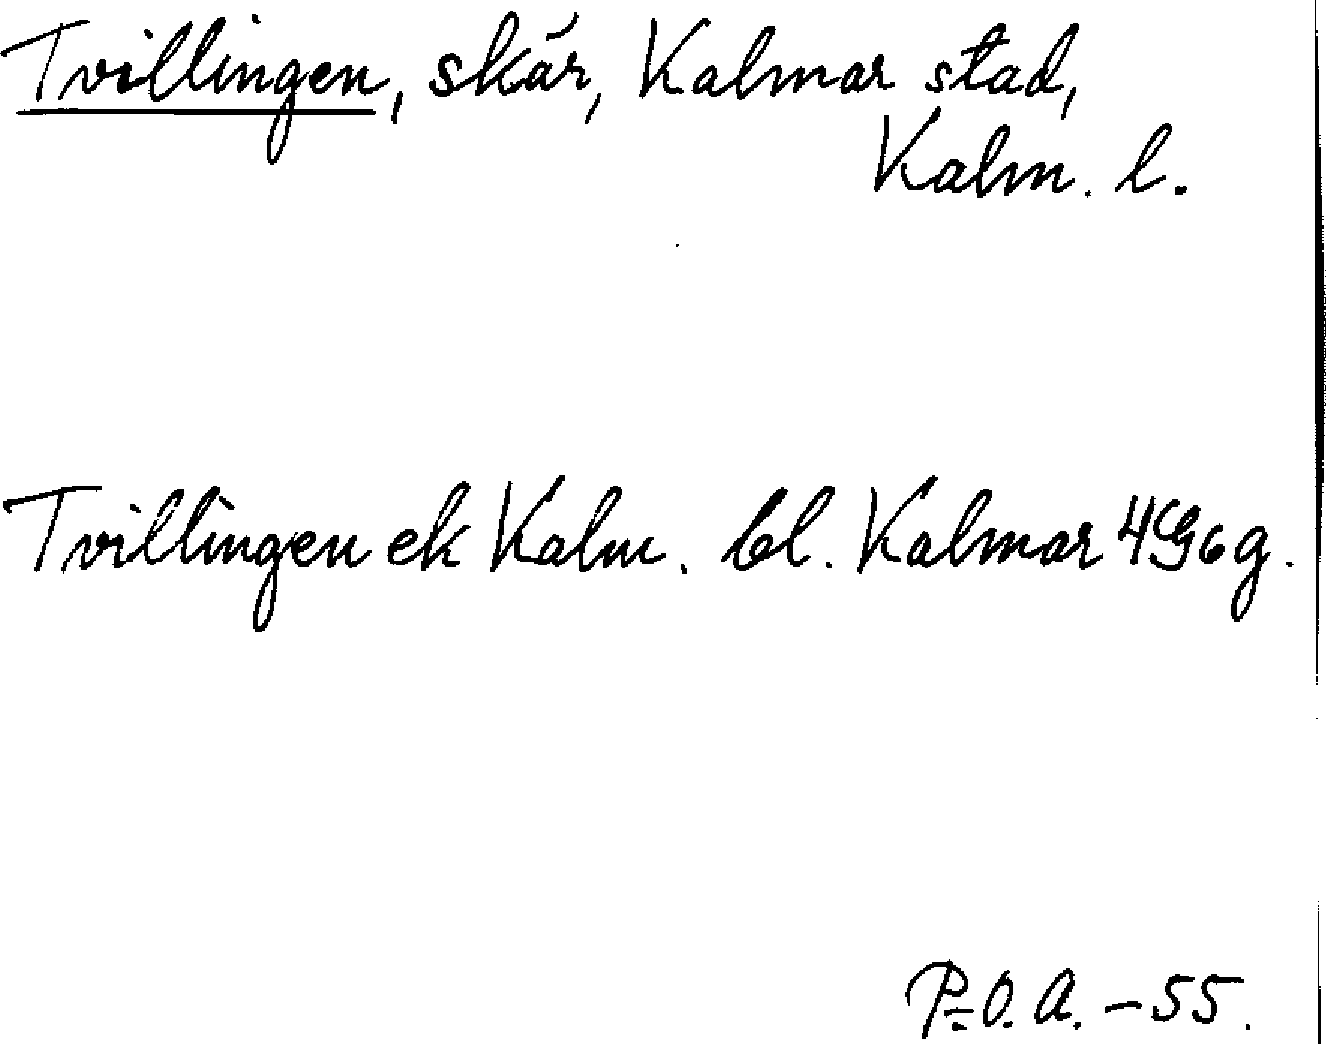 Tvillingen, skär, Kalmar stad,
Kalm. l.
Tvillingen ek Kalm. bl. Kalmar 4G6g.
P.-O. A. - 55.